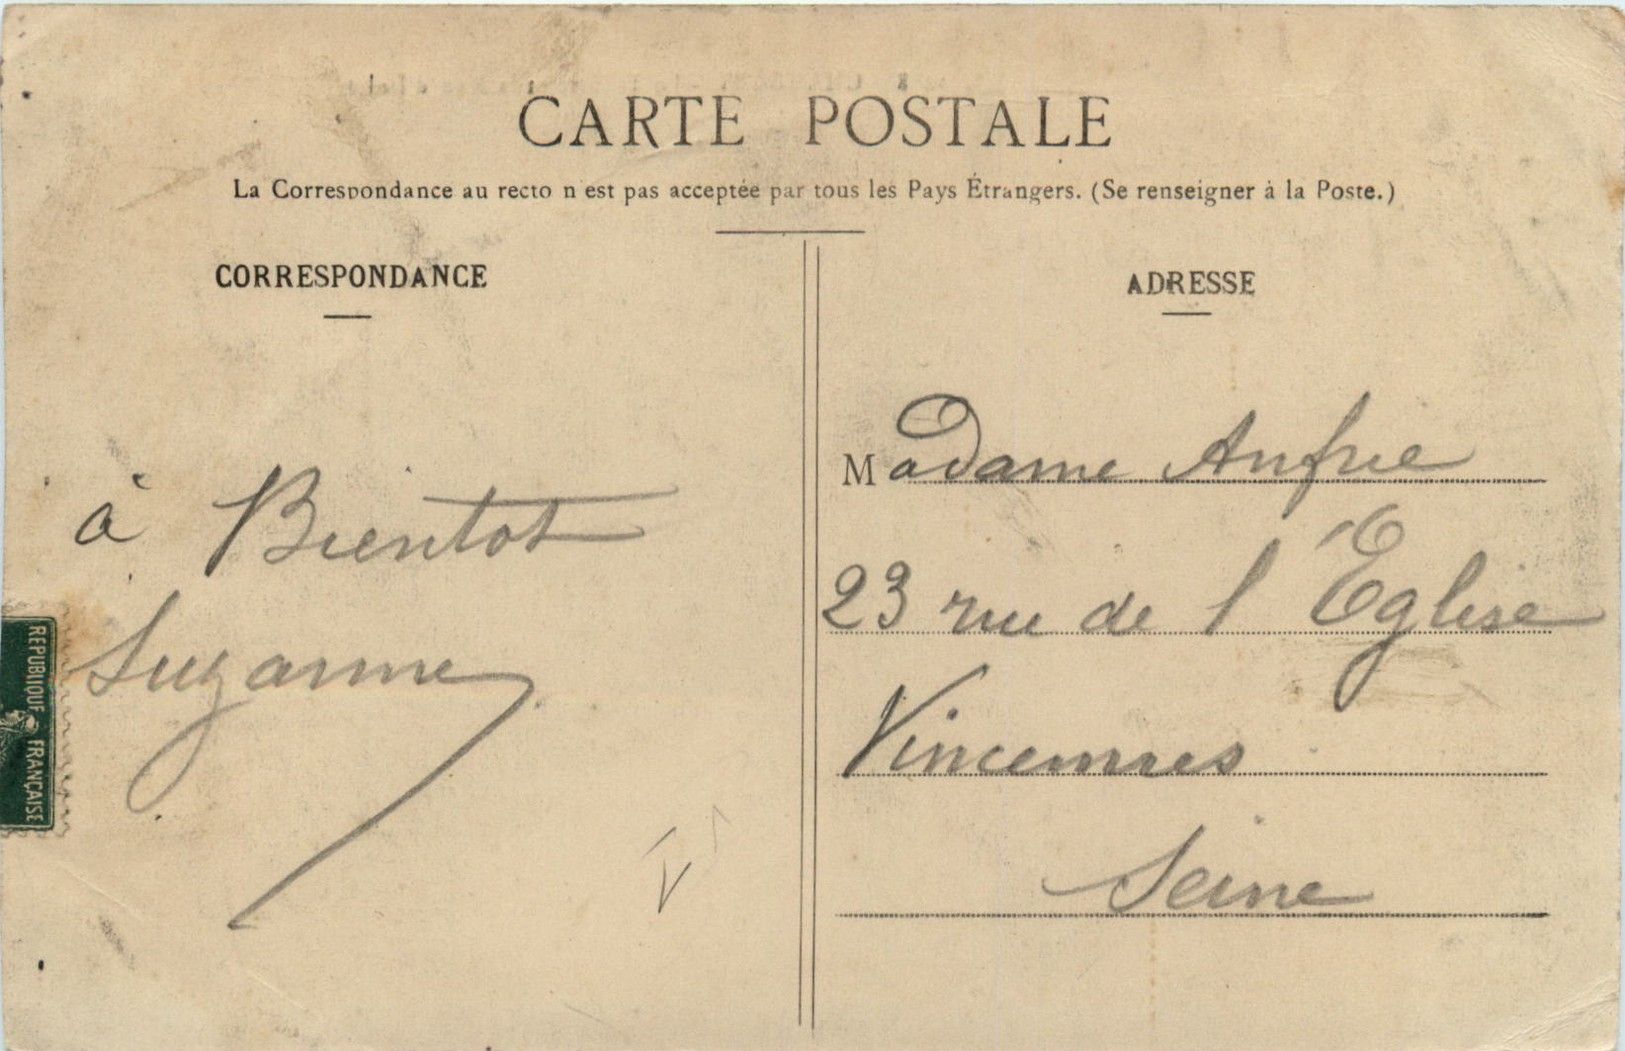 CARTE POSTALE
La Correspondance au recto n est pas acceptée par tous les Pays Étrangers. (Se renseigner à la Poste.)
CORRESPONDANCE
à Bientot
Suzanne
REPUBLIQUE FRANÇAISE
ADRESSE
Madame Anfrie
23 rue de l Église
Vincennes
Seine